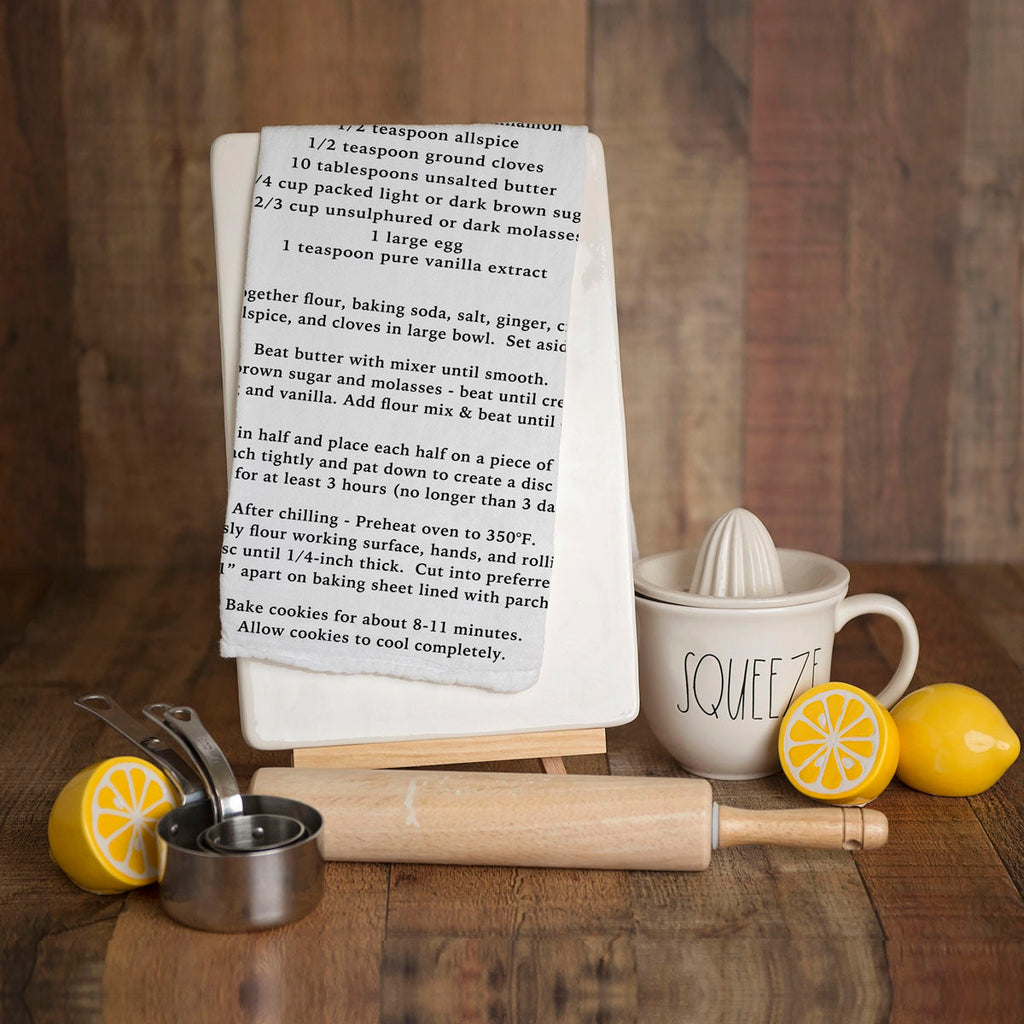 1/2 teaspoon allspice
1/2 teaspoon ground cloves
10 tablespoons unsalted butter
/4 cup packed light or dark brown sug
2/3 cup unsulphured or dark molasses
1 large egg
1 teaspoon pure vanilla extract
gether flour, baking soda, salt, ginger, c
lspice, and cloves in large bowl. Set asid
Beat butter with mixer until smooth.
rown sugar and molasses - beat until cre
and vanilla. Add flour mix & beat until
in half and place each half on a piece of
ach tightly and pat down to create a disc
for at least 3 hours (no longer than 3 da
After chilling - Preheat oven to 350°F.
sly flour working surface, hands, and rolli
sc until 1/4-inch thick. Cut into preferre
1” apart on baking sheet lined with parch
Bake cookies for about 8-11 minutes.
Allow cookies to cool completely.
SQUEEZE